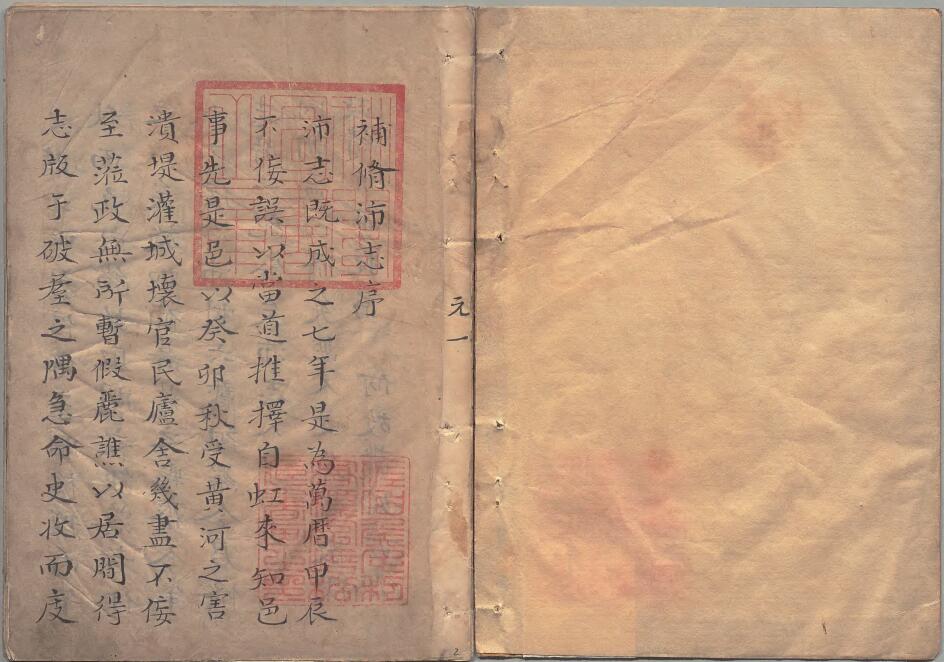 補脩沛志序
沛志既成之七年是為萬曆甲辰
不佞誤以當道推擇自虹來知邑
事先是邑以癸卯秋受黃河之害
潰堤灌城壞官民廬舍幾盡不佞
至蒞政無所暫假麗譙以居間得
志版于破屋之隅急命史收而庋
元一
2